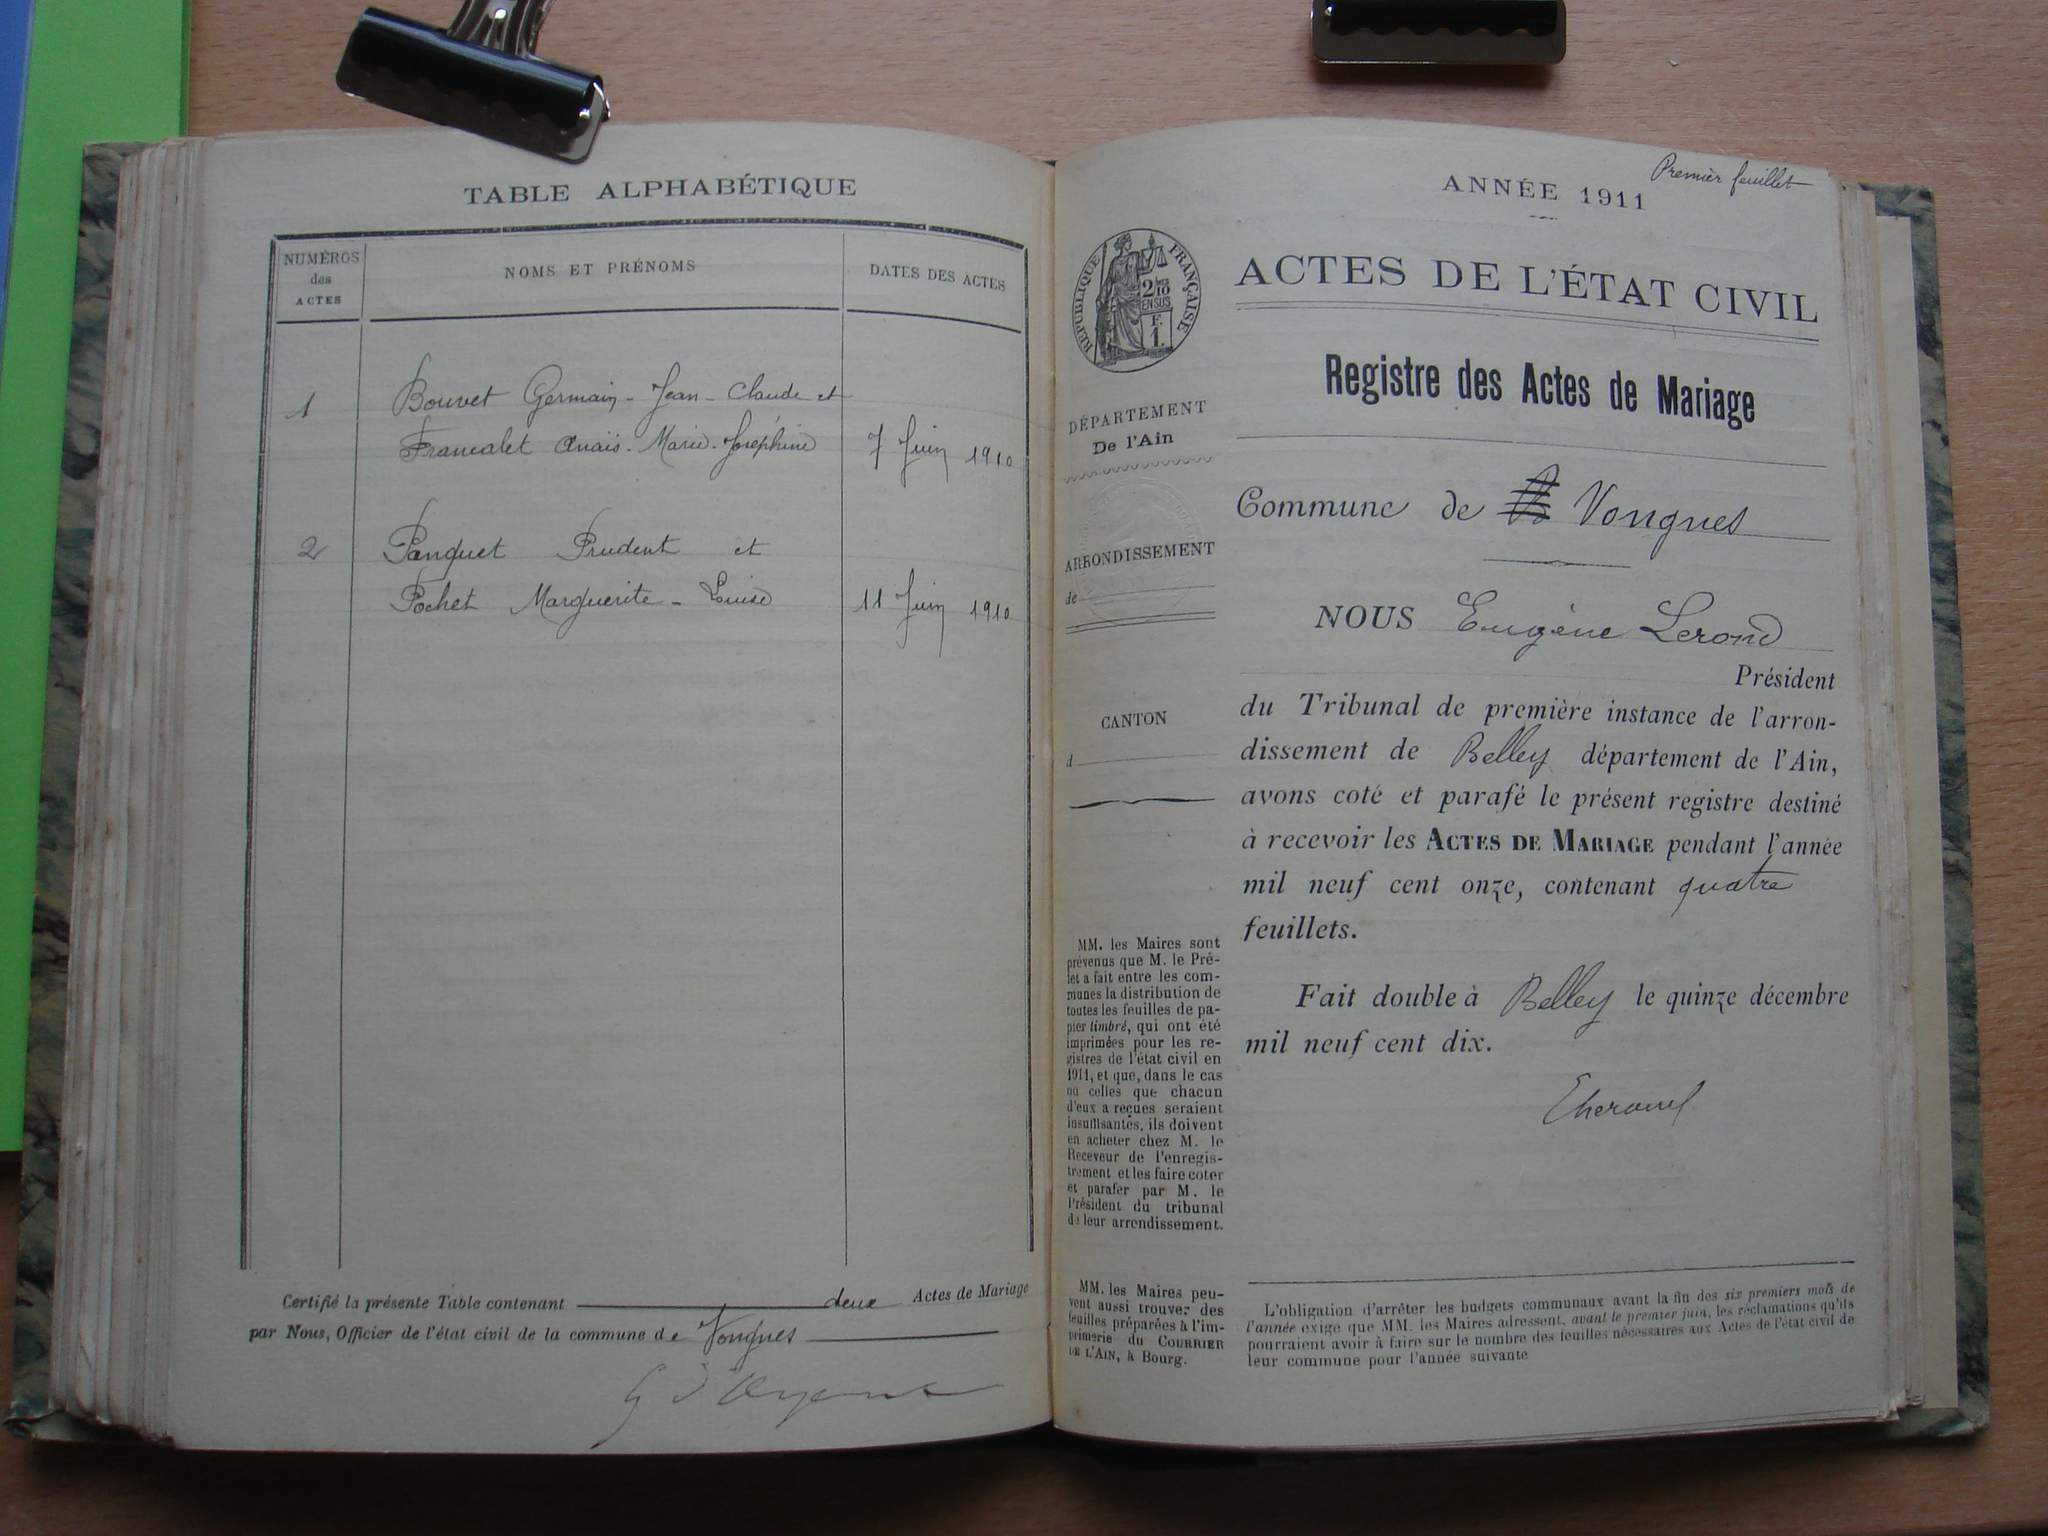 TABLE ALPHABÉTIQUE
NUMÉROS
des
ACTES
NOMS ET PRÉNOMS
DATES DES ACTES
1
Bouvet Germain - Jean - Claude et
Francalet Anaïs - Marie - Joséphine
7 Juin 1910
2
Panquet Prudent et
Pochet Marguerite - Louise
11 Juin 1910
Certifié la présente Table contenant deux Actes de Mariage
par Nous, Officier de l'état civil de la commune de Vongnes
Premier feuillet
ANNÉE 1911
RÉPUBLIQUE FRANÇAISE
2 10
EN SUS
F.
1.
ACTES DE L'ÉTAT CIVIL
Registre des Actes de Mariage
DÉPARTEMENT
De l'Ain
ARRONDISSEMENT
de
CANTON
d
Commune de Vongnes
NOUS Eugène Lerond
Président
du Tribunal de première instance de l'arron-
dissement de Belley département de l'Ain,
avons coté et parafé le présent registre destiné
à recevoir les ACTES DE MARIAGE pendant l'année
mil neuf cent onze, contenant quatre
feuillets.
Fait double à Belley le quinze décembre
mil neuf cent dix.
MM. les Maires sont
prévenus que M. le Pré-
fet a fait entre les com-
munes la distribution de
toutes les feuilles de pa-
pier timbré, qui ont été
imprimées pour les re-
gistres de l'état civil en
1911, et que, dans le cas
où celles que chacun
d'eux a reçues seraient
insuffisantes, ils doivent
en acheter chez M. le
Receveur de l'enregis-
trement et les faire coter
et parafer par M. le
Président du tribunal
de leur arrondissement.
MM. les Maires peu-
vent aussi trouver des
feuilles préparées à l'im-
primerie du COURRIER
DE L'AIN, à Bourg.
L'obligation d'arrêter les budgets communaux avant la fin des six premiers mois de
l'année exige que MM. les Maires adressent, avant le premier juin, les réclamations qu'ils
pourraient avoir à faire sur le nombre des feuilles nécessaires aux Actes de l'état civil de
leur commune pour l'année suivante